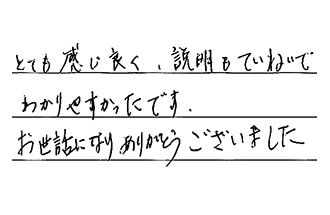 とても感じ良く、説明もていねいで
わかりやすかったです.
お世話になりありがとうございました